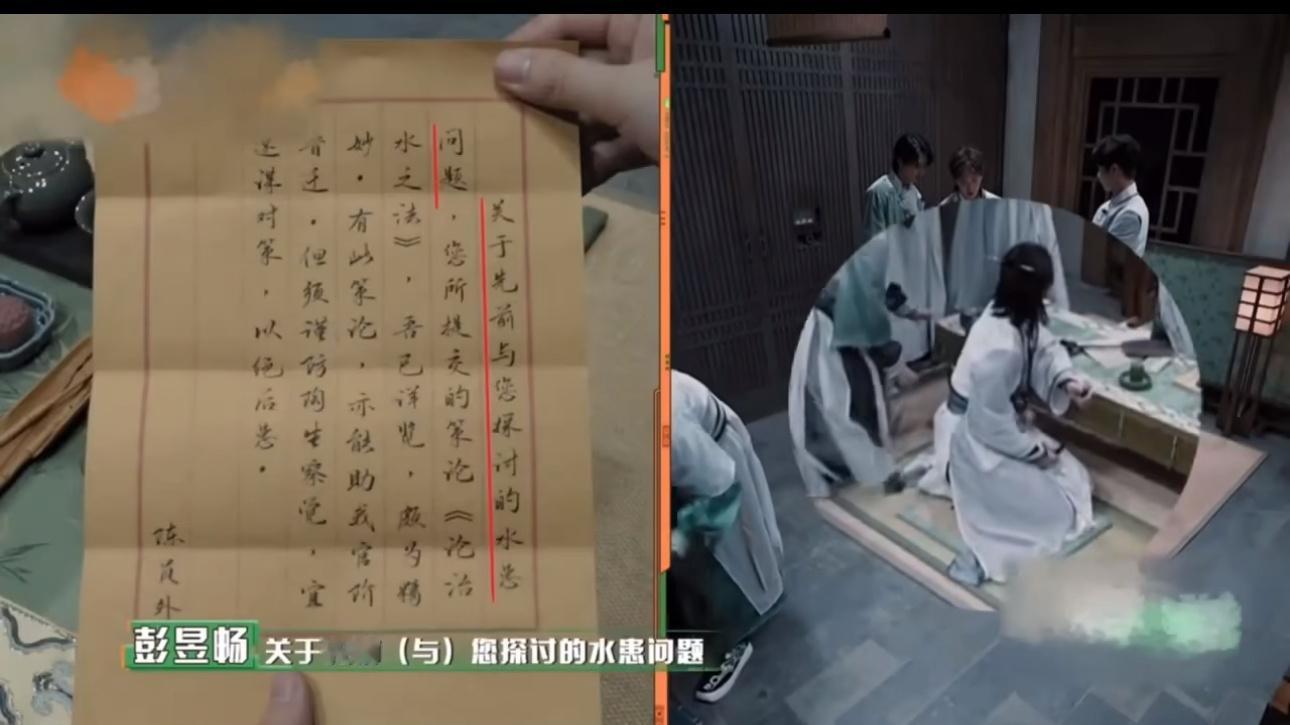 关于先前与您探讨的水患
问题，您所提交的策论《论治
水之法》，吾已详览，颇为精
妙。有此策论，亦能助我官阶
晋迁。但须谨防陶生察觉，宜
速谋对策，以绝后患。
陈员外
彭昱畅 关于（与）您探讨的水患问题